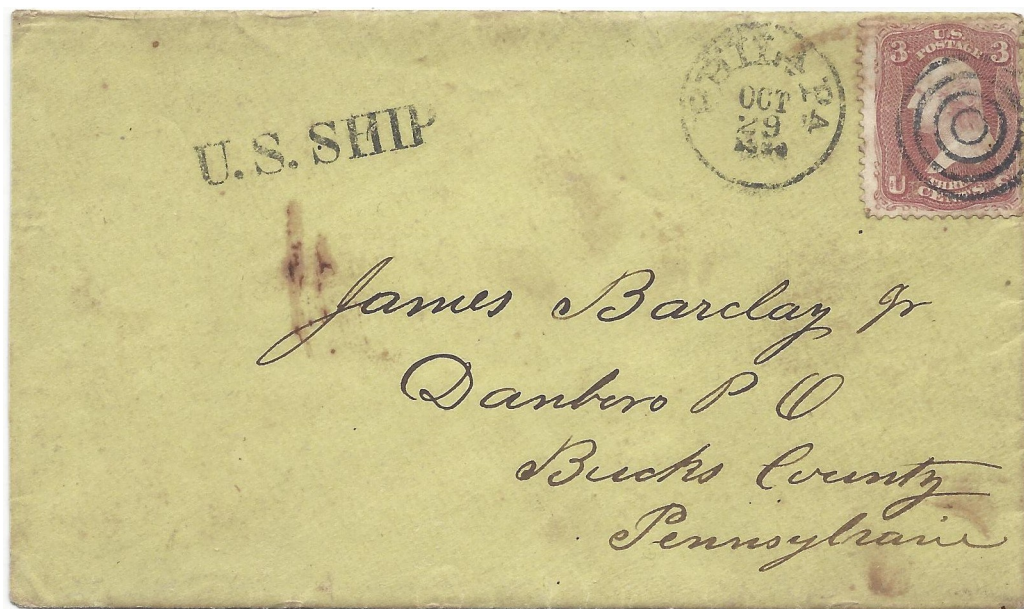 U.S. SHIP
PHILA PA
OCT
29
3 U.S. 3
POSTAGE
U S
CENTS
James Barclay Jr
Danboro P O
Bucks County
Pennsylvania